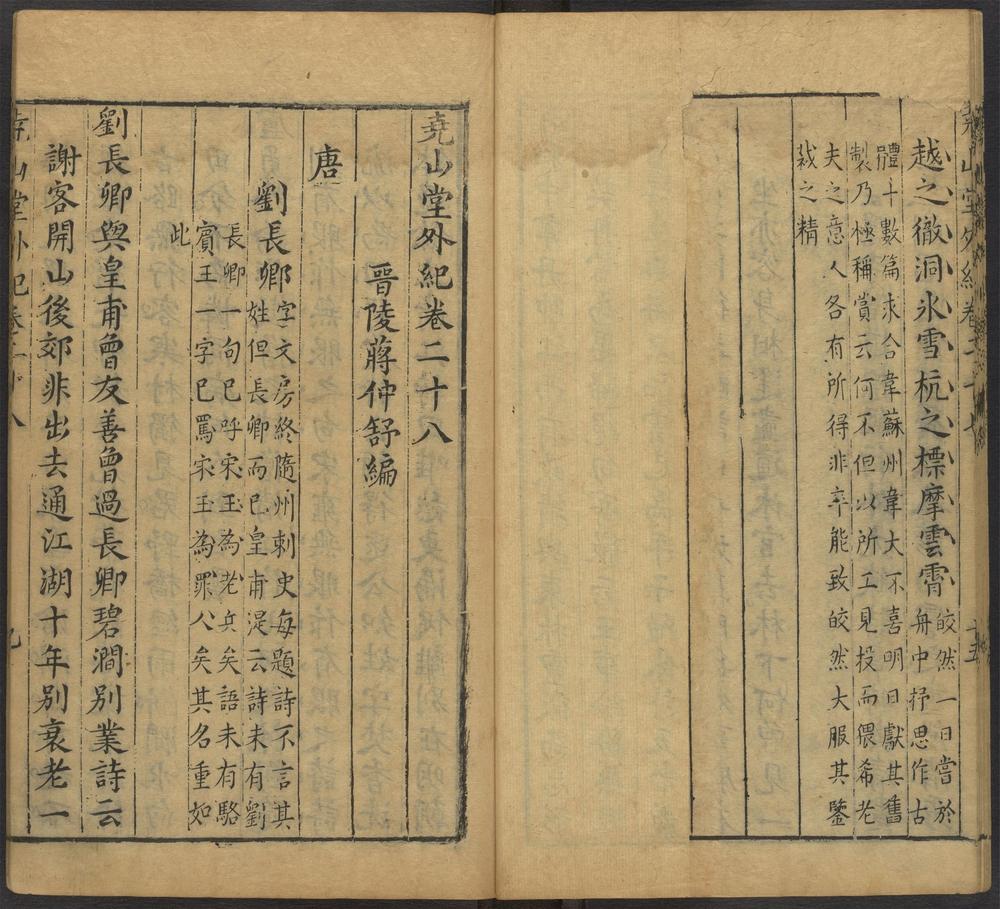 堯山堂外紀卷二十七
越之徹洞氷雪杭之標摩雲霄
皎然一日嘗於
舟中抒思作古
體十數篇求合韋蘇州韋大不喜明日獻其舊
製乃極稱賞云何不但以所工見投而猥希老
夫之意人各有所得非卒能致皎然大服其鑒
裁之精
堯山堂外紀卷二十八
晉陵蔣仲舒編
唐
劉長卿
字文房終隨州刺史每題詩不言其
姓但長卿而已皇甫湜云詩未有劉
長卿一句已呼宋玉為老兵矣語未有駱
賓王一字已罵宋玉為罪人矣其名重如
此
劉長卿與皇甫曾友善曾過長卿碧澗別業詩云
謝客開山後郊非出去通江湖十年別衰老一
堯山堂外紀卷二十八